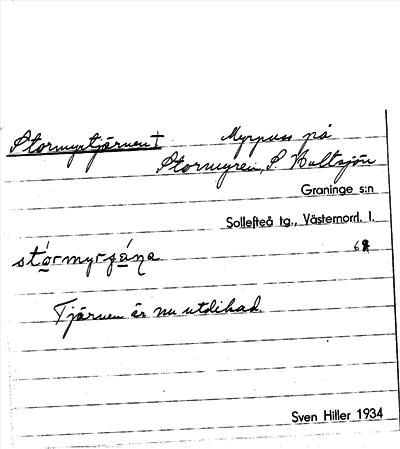 Stormyrtjärnen † Myrpuss på
Stormyren, S. Hultsjön
Graninge s:n
Sollefteå tg., Västernorrl. l.
Tjärnen är nu utdikad.
Sven Hiller 1934